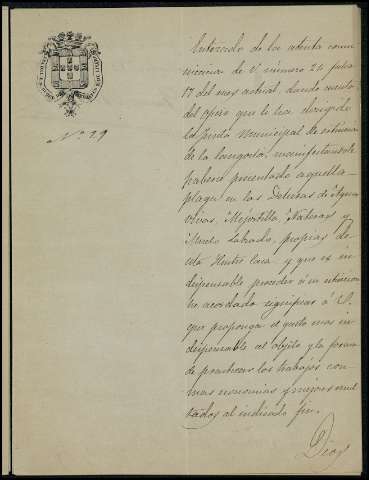 Nº 29
Enterado de la atenta comu
nicacion de V. número 24 fecha
17 del mes actual, dando cuenta
del oficio que le ha dirigido
la Junta Municipal de estincion
de la langosta, manifestandole
haberse presentado aquella
plaga en las Dehesas de Agua
vivas, Mejostilla, Nateras y
Muelo Labrado, propias de
esta Ilustre Casa y que es in
dispensable proceder á su estincion
he acordado significar á V.
que proponga el gasto mas in
dispensable al objeto y la forma
de practicar los trabajos con
mas economias y mejores resul
tados al indicado fin.
Dios